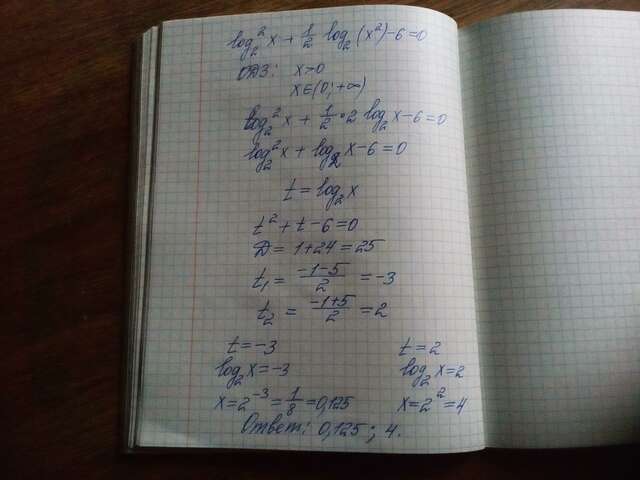 log₂²x + 1/2 log₂(x²) - 6 = 0
ОДЗ: x>0
x∈(0; +∞)
log₂²x + 1/2 • 2 log₂x - 6 = 0
log₂²x + log₂x - 6 = 0
t = log₂x
t² + t - 6 = 0
D = 1 + 24 = 25
t₁ = (-1-5)/2 = -3
t₂ = (-1+5)/2 = 2
t = -3
log₂x = -3
x = 2⁻³ = 1/8 = 0,125
t = 2
log₂x = 2
x = 2² = 4
Ответ: 0,125; 4.